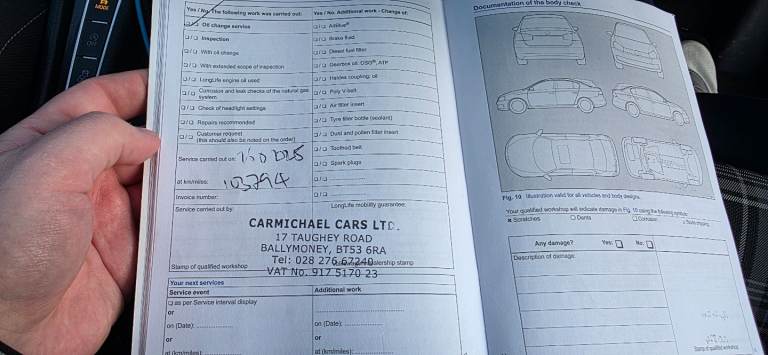 Yes / No: The following work was carried out:
Oil change service
Inspection
With oil change
With extended scope of inspection
LongLife engine oil used
Corrosion and leak checks of the natural gas system
Check of headlight settings
Repairs recommended
Customer request
(this should also be noted on the order)
Service carried out on:
at km/miles: 103794
Invoice number:
Service carried out by:
Yes / No: Additional work - Change of:
AdBlue®
Brake fluid
Diesel fuel filter
Gearbox oil: DSG®, ATF
Haldex coupling: oil
Poly V-belt
Air filter insert
Tyre filler bottle (sealant)
Dust and pollen filter insert
Toothed belt
Spark plugs
LongLife mobility guarantee:
CARMICHAEL CARS LTD.
17 TAUGHEY ROAD
BALLYMONEY, BT53 6RA
Tel: 028 276 67240
VAT No. 917 5170 23
Stamp of qualified workshop
dealership stamp
Your next services
Service event
Additional work
as per Service interval display
or
on (Date):
on (Date):
or
or
at (km/miles):
at (km/miles):
Documentation of the body check
Fig. 10 Illustration valid for all vehicles and body designs.
Your qualified workshop will indicate damage in Fig. 10 using the following symbols:
Scratches
Dents
Corrosion
Any damage? Yes: No:
Description of damage:
Stamp of qualified workshop